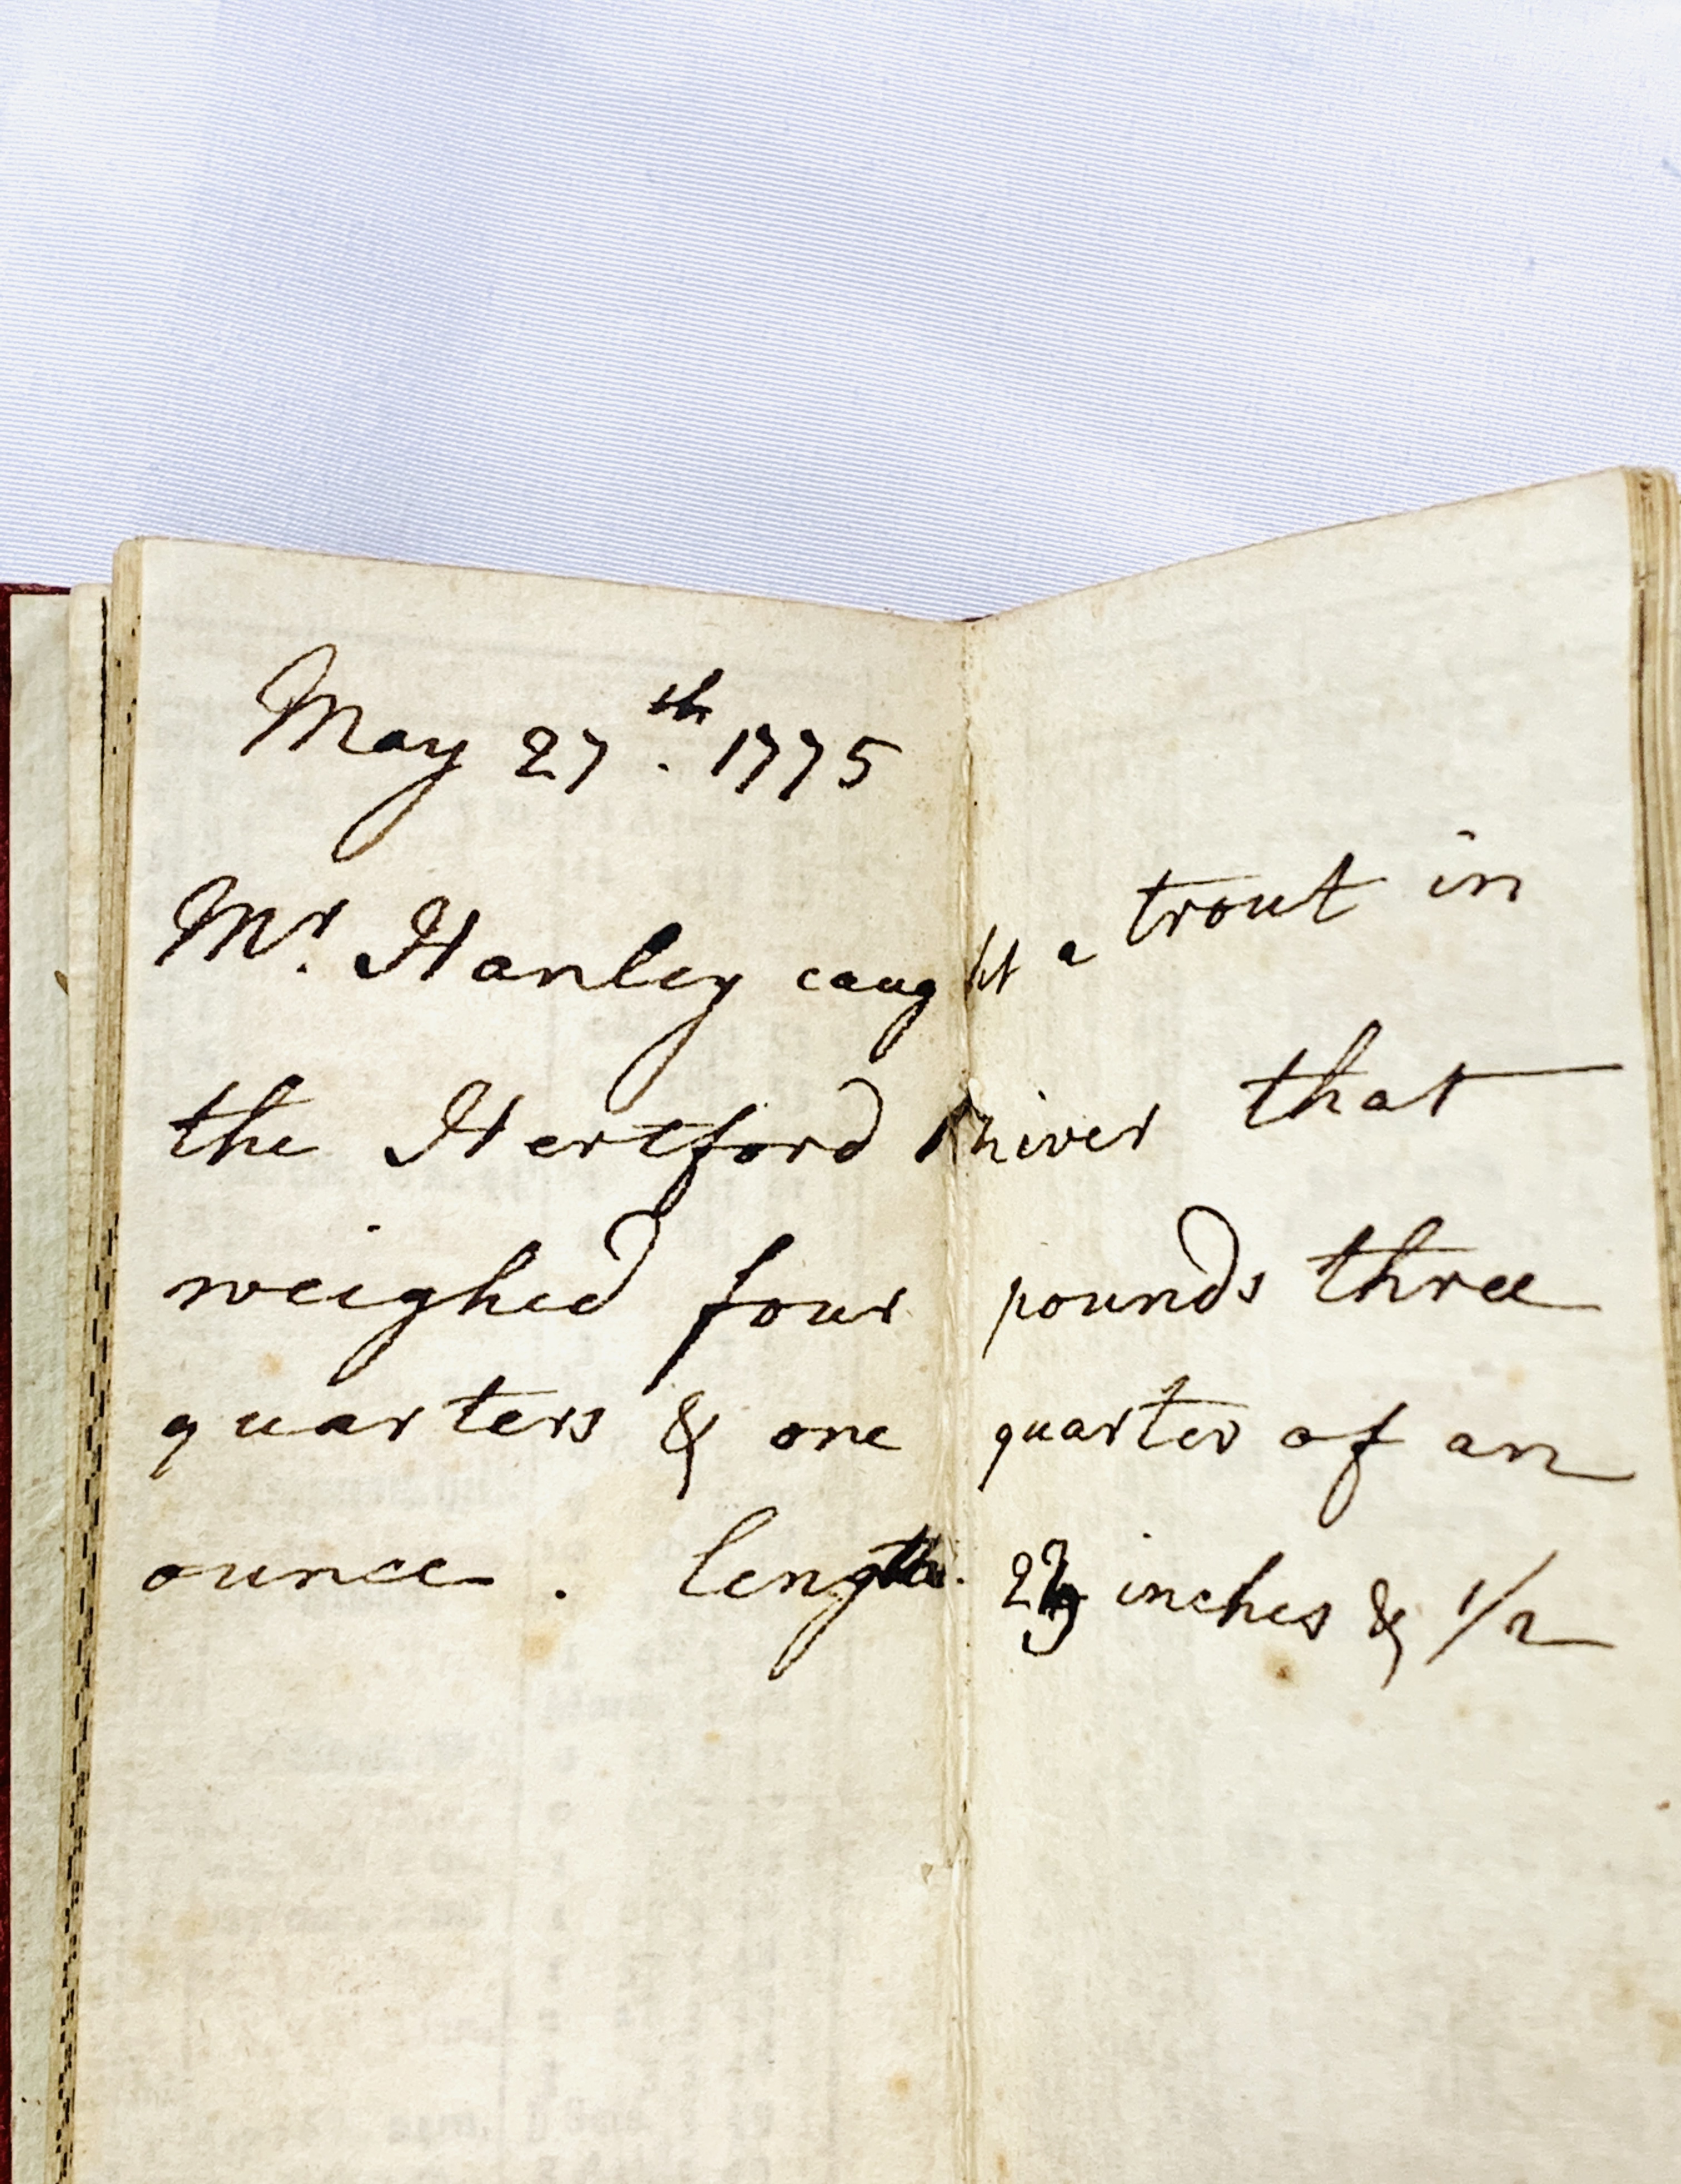 May 27th. 1775
Mr. Hanley caught a trout in
the Hertford River that
weighed four pounds three
quarters & one quarter of an
ounce. length. inches & 1/2